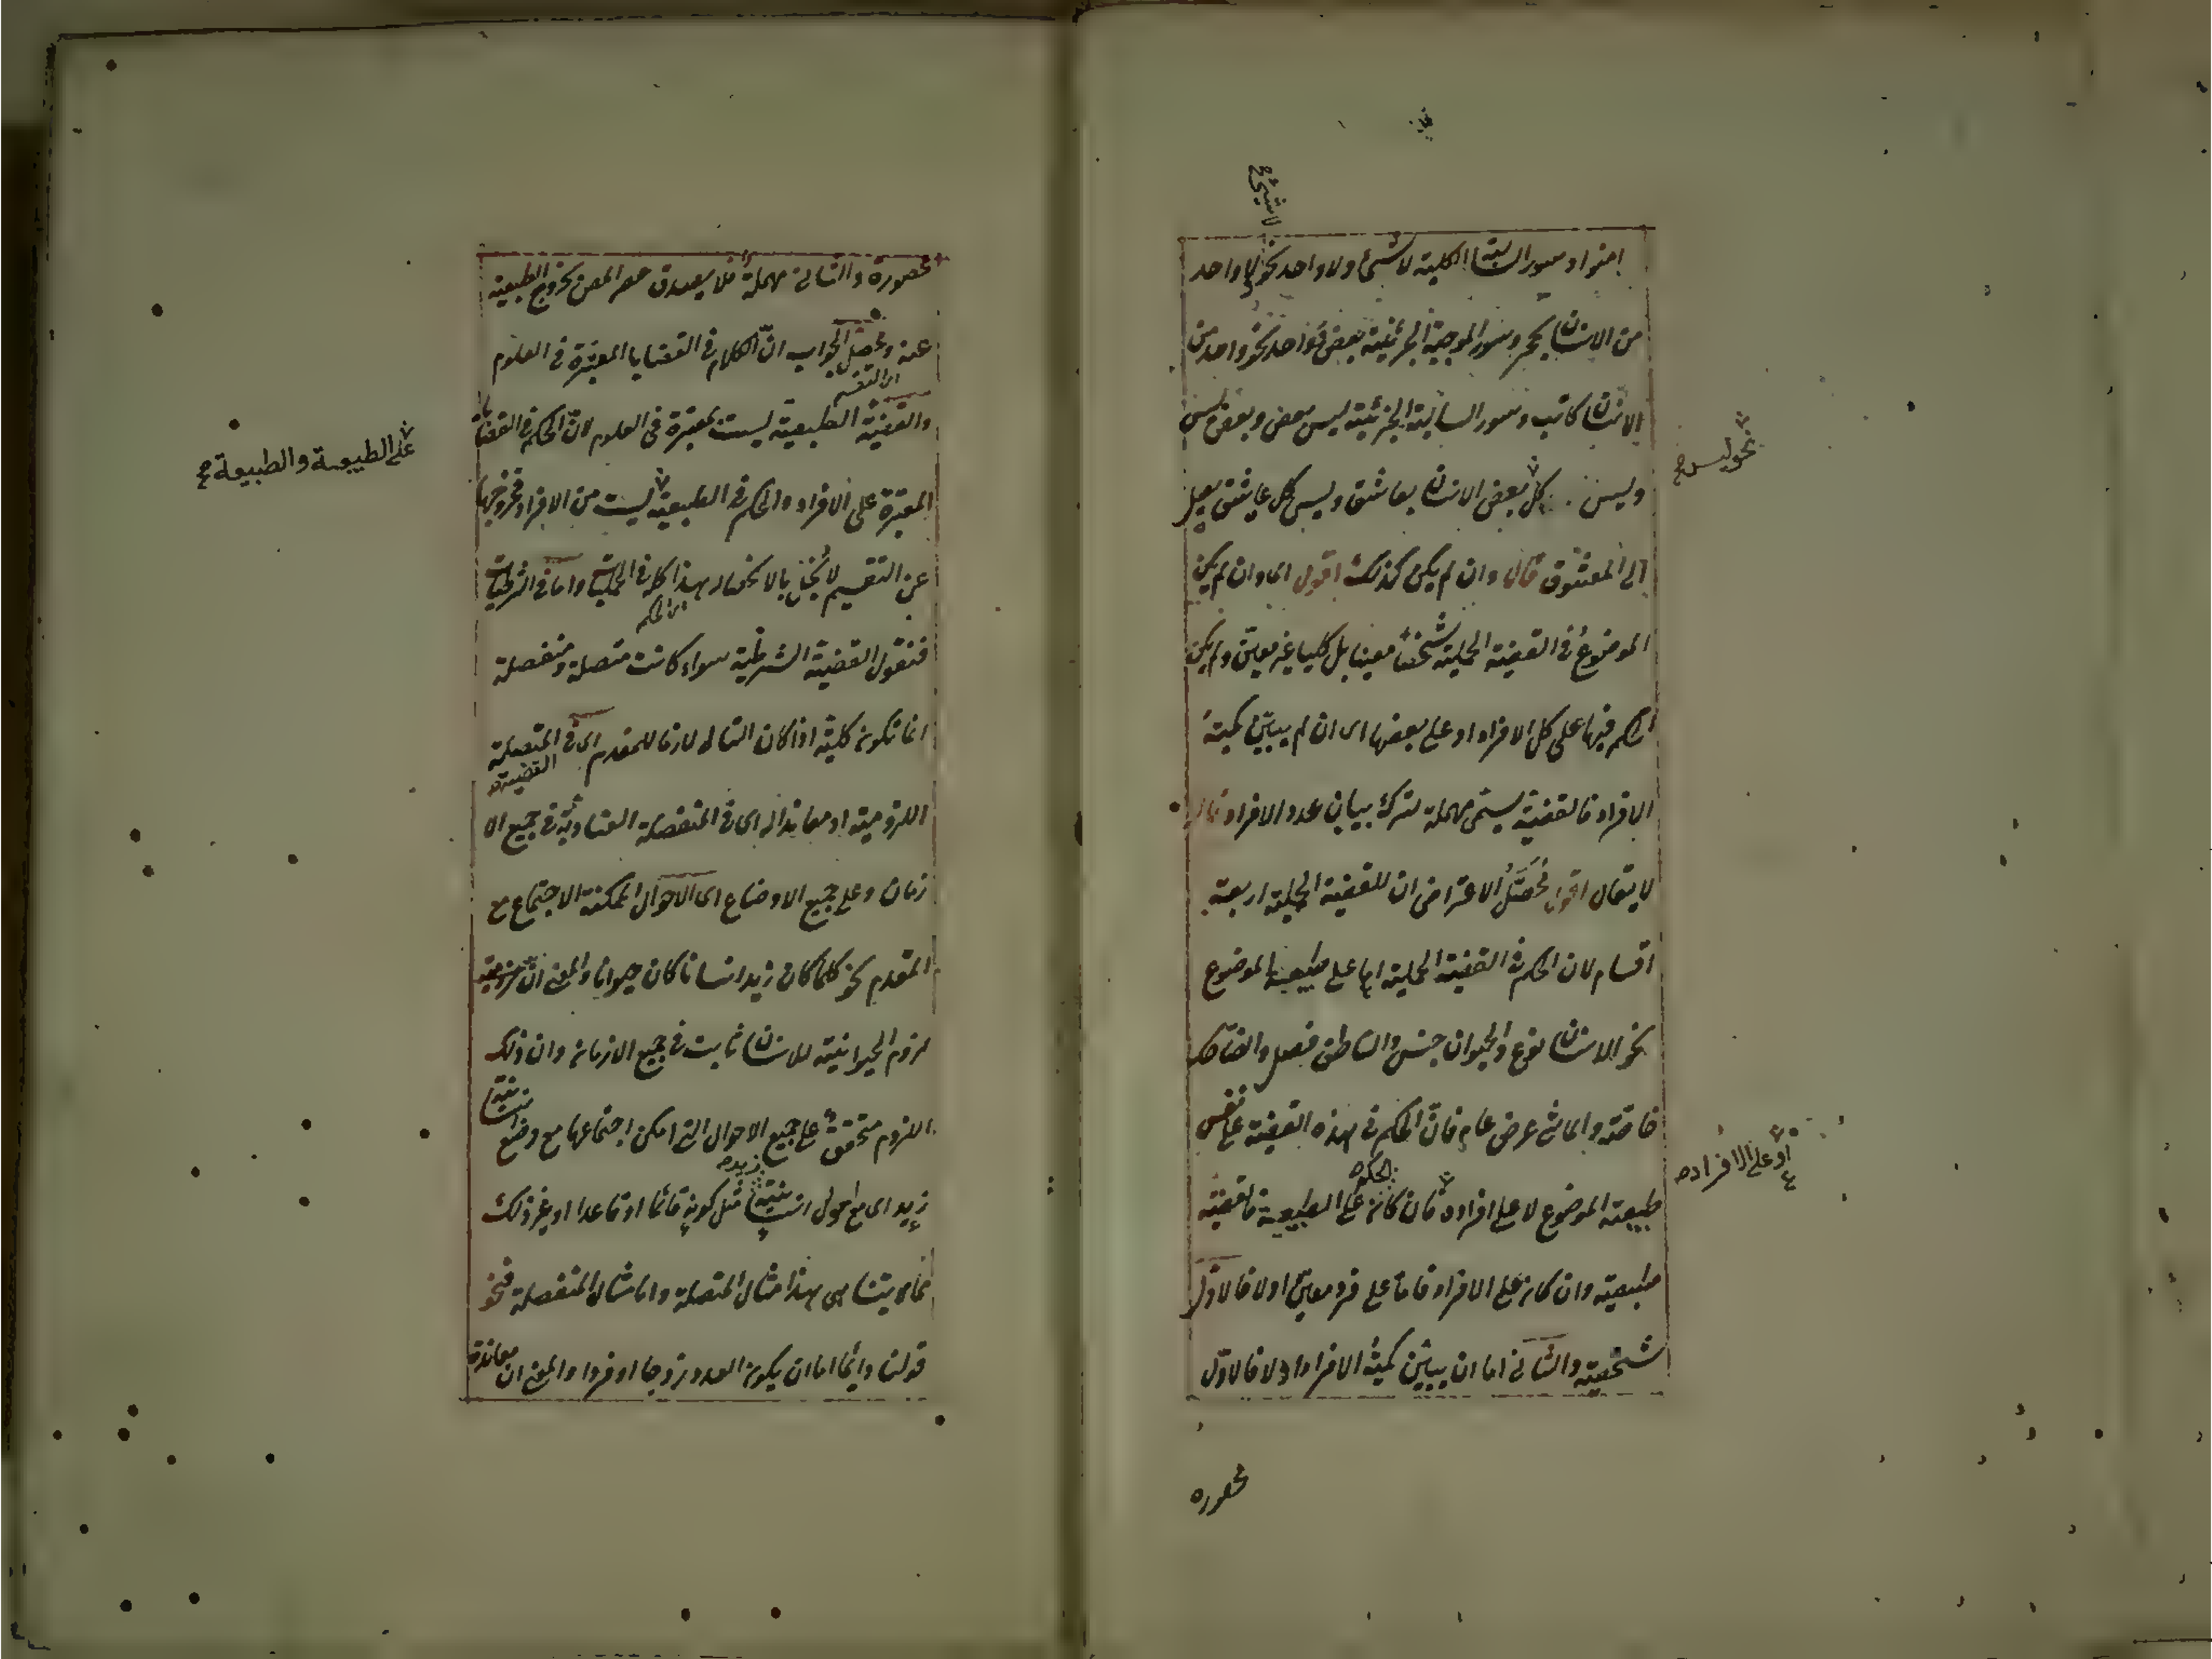 لا شيء
امنوا وسور السالبة الكلية لا شئ ولا واحد نحو لا واحد
من الانسان بحجر وسور الموجبة الجزئية بعض وواحد نحو واحد من
الانسان كاتب وسور السالبة الجزئية ليس بعض وبعض ليس
نحو ليس
وليس كل بعض الانسان بعاشق وليس كل عاشق يصل
الى المعشوق قال وان لم يكن كذلك اقول اى وان لم يكن
الموضوع فى القضية الحملية شخصا معينا بل كليا غير معين ولم يكن
الحكم فيها على كل الافراد او على بعضها اى ان لم يبين كمية
الافراد فالقضية يسمى مهملة لترك بيان عدد الافراد قال
لا يقال اقول محصل الاعتراض ان للقضية الحملية اربعة
اقسام لان الحكم فى القضية الحملية اما على طبيعة الموضوع
نحو الانسان نوع والحيوان جنس والناطق فصل والضاحك
خاصة والماشى عرض عام فان الحكم فى هذه القضية على نفس
او على الافراد
طبيعة الموضوع لا على افراده فان كان الحكم على الطبيعة فالقضية
طبيعية وان كان على الافراد فاما على فرد معين اولا فالاول
شخصية والثانى اما ان يبين كمية الافراد اولا فالاول
محصوره
محصورة والثانى مهملة فلا يصدق حصر المص لخروج الطبيعية
عنه ومحصل الجواب ان الكلام فى القضايا المعتبرة فى العلوم
اى التقسيم
والقضية الطبيعية ليست بمعتبرة فى العلوم لان الحكم فى القضايا
على الطبيعة والطبيعة
المعتبرة على الافراد والحكم فى الطبيعية ليست من الافراد فخروجها
عن التقسيم لا يخل بالانحصار هذا كله فى الحمليات واما فى الشرطيات
اى الحكم
فنقول القضية الشرطية سواء كانت متصلة ومنفصلة
انما تكون كلية اذا كان التالى لازما للمقدم اى فى المتصلة
القضية
اللزومية او معاندا له اى فى المنفصلة العنادية فى جميع الا
زمان وعلى جميع الاوضاع اى الاحوال الممكنة الاجتماع مع
المقدم نحو كلما كان زيد انسانا كان حيوانا والمعنى ان
لزوم الحيوانية للانسان ثابت فى جميع الازمان وان ذلك
اللزوم متحقق على جميع الاحوال التى امكن اجتماعها مع وضع انسانية
زيد
زيد اى مع احوال انسانية مثل كونه قائما او قاعدا او غير ذلك
مما لا يتناهى هذا مثال المتصلة واما مثال المنفصلة فنحو
قولنا دائما اما ان يكون العدد زوجا او فردا والمعنى ان معاندة